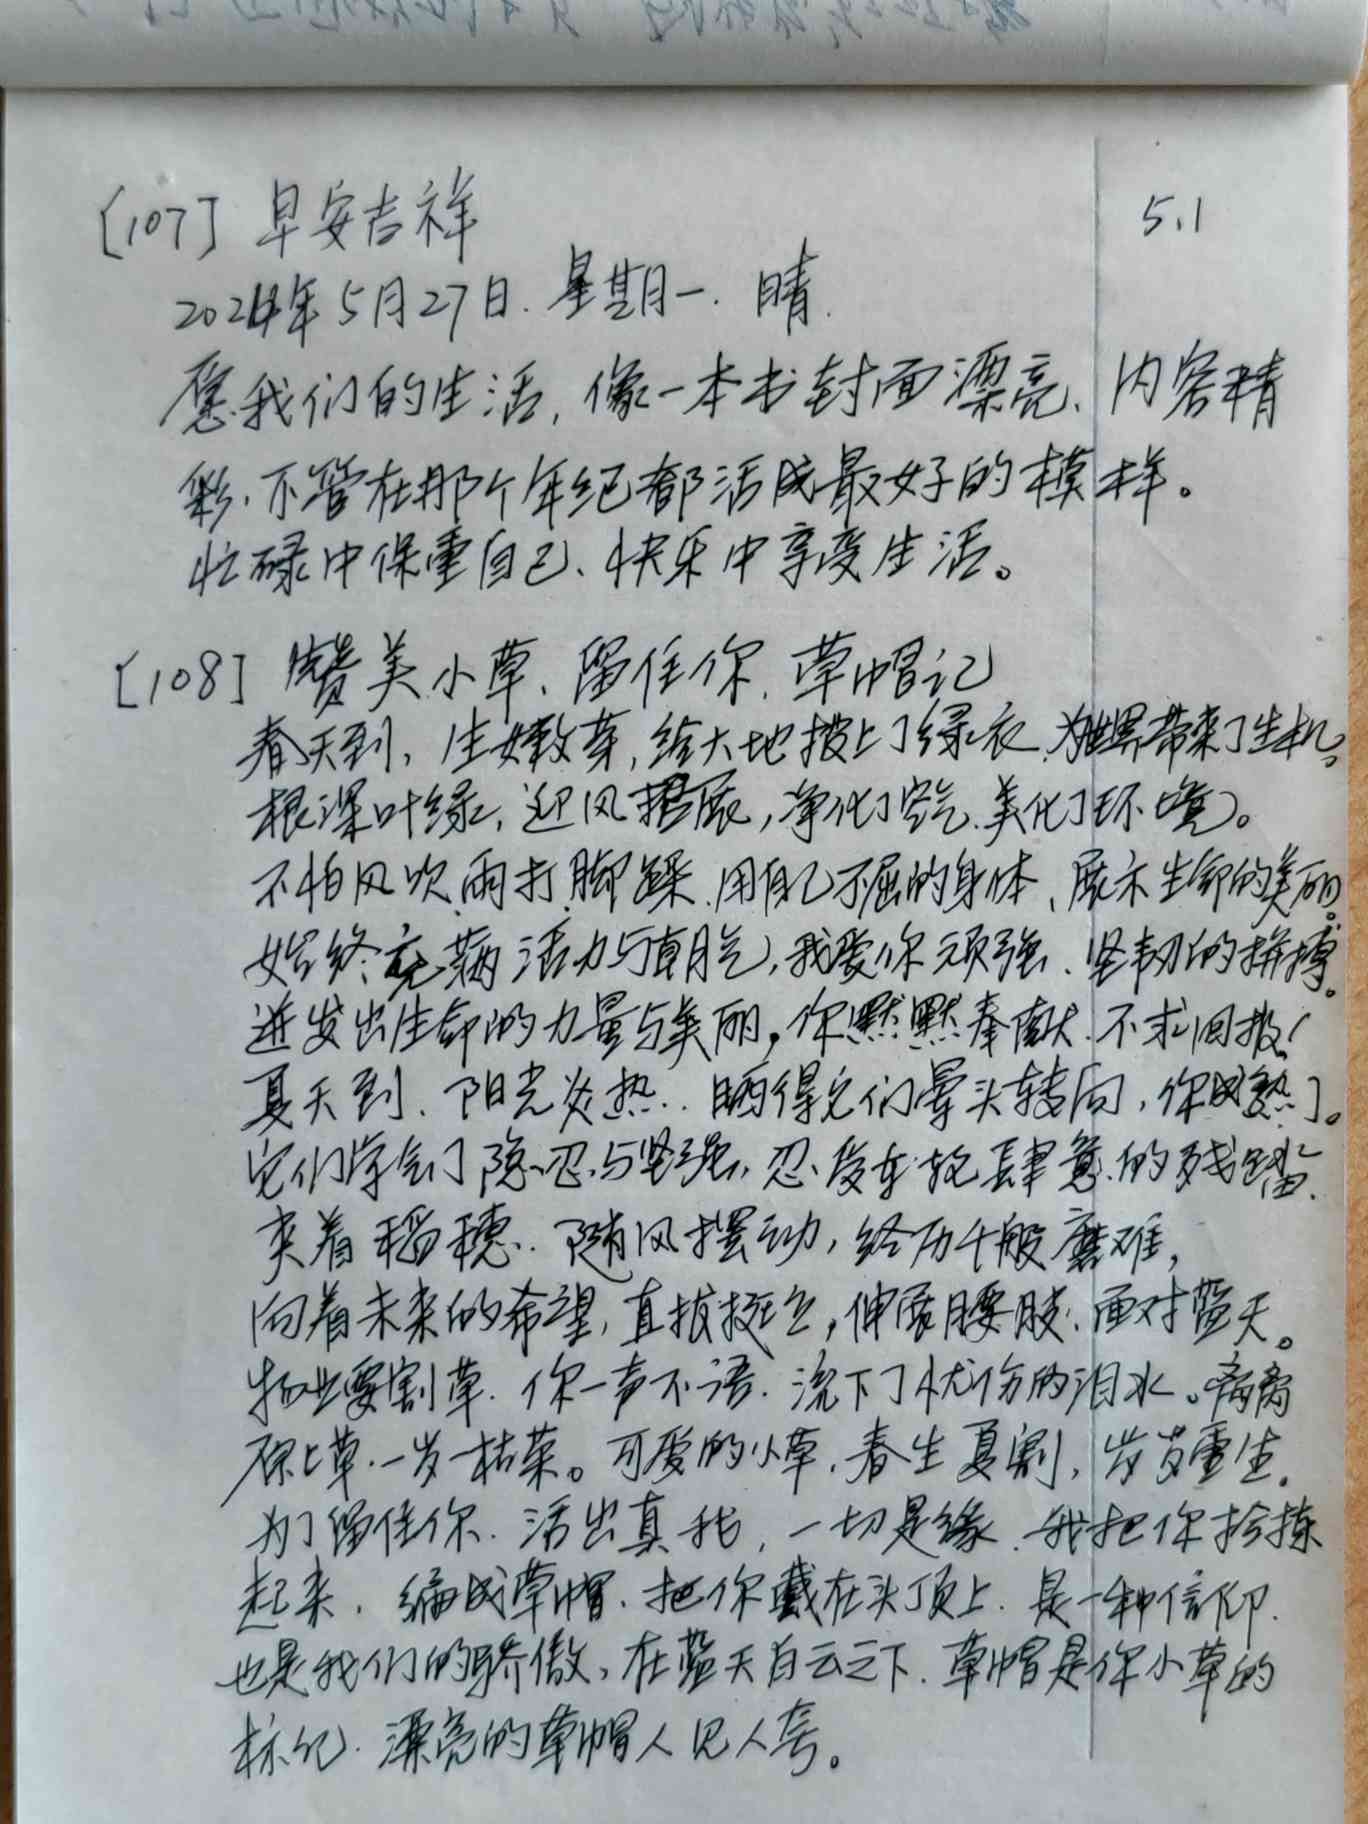 [107] 早安吉祥
5.1
2024年5月27日.星期一.晴.
愿我们的生活,像一本书封面漂亮、内容精
彩.不管在那个年纪都活成最好的模样。
忙碌中保重自己、快乐中享受生活。
[108] 赞美小草、留住你.草帽记
春天到,生嫩芽,给大地披上了绿衣.为世界带来了生机。
根深叶绿,迎风招展,净化了空气.美化了环境。
不怕风吹.雨打.脚踩.用自己不屈的身体、展示生命的美丽。
始终充满活力与朝气,我爱你顽强、坚韧的拼搏。
迸发出生命的力量与美丽,你默默奉献.不求回报!
夏天到.阳光炎热..晒得它们晕头转向,你成熟了。
它们学会了隐忍与坚强,忍受车轮肆意的残踏.
夹着稻穗..随风摆动,经历千般磨难,
向着未来的希望,直拔挺立,伸展腰肢.面对蓝天。
物业要割草.你一声不语.流下了忧伤的泪水。离离
原上草.一岁一枯荣。可爱的小草.春生夏割,岁岁重生.
为了留住你.活出真我,一切是缘.我把你拾拣
起来.编成草帽.把你戴在头顶上.是一种信仰.
也是我们的骄傲,在蓝天白云之下.草帽是你小草的
标记.漂亮的草帽人见人夸。